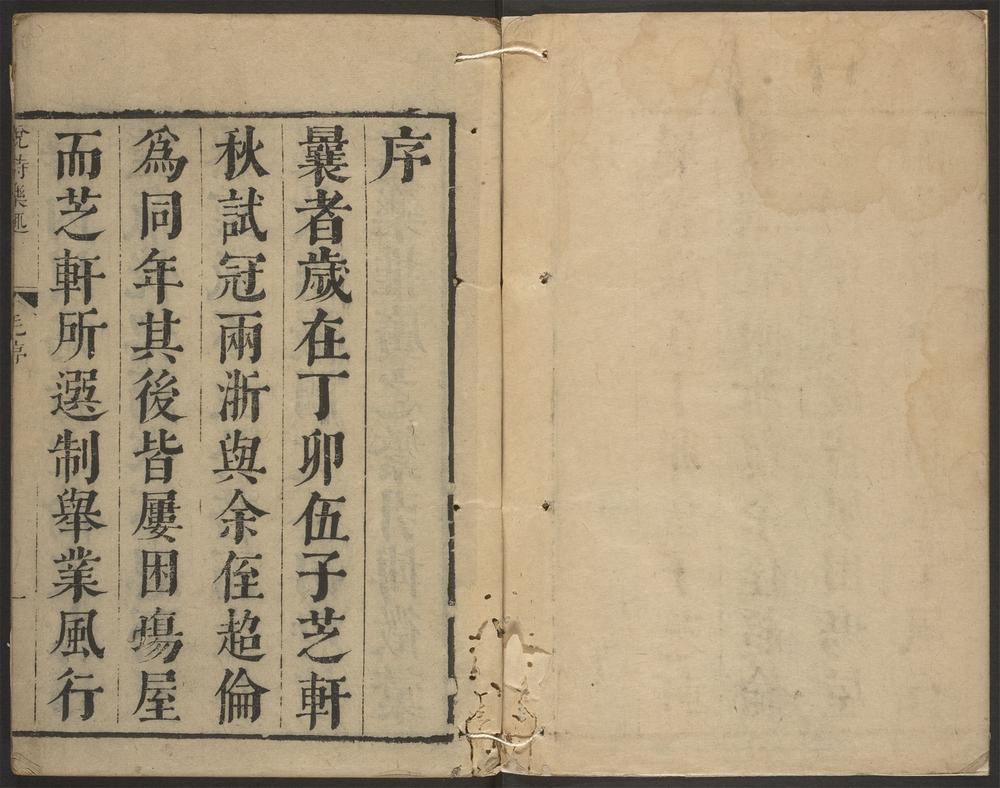 序
曩者歲在丁卯伍子芝軒
秋試冠兩浙與余侄超倫
爲同年其後皆屢困塲屋
而芝軒所選制舉業風行
說詩樂趣
毛序
一